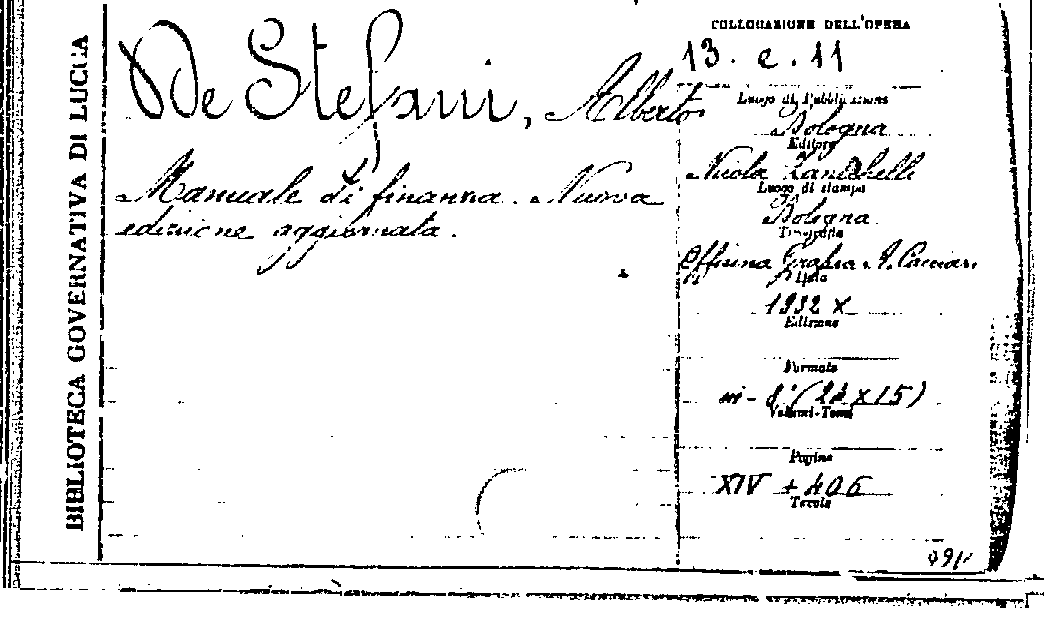 BIBLIOTECA GOVERNATIVA DI LUCCA
De Stefani, Alberto
Manuale di finanza. Nuova
edizione aggiornata.
COLLOCAZIONE DELL'OPERA
13. e. 11
Luogo di Pubblicazione
Bologna
Editore
Nicola Zanichelli
Luogo di stampa
Bologna
Tipografia
Officina Grafica A. Cacciari
Data
1932 X
Edizione
Formato
in-8° (24 x 15)
Volumi-Tomi
Pagine
XIV + 406
Tavole